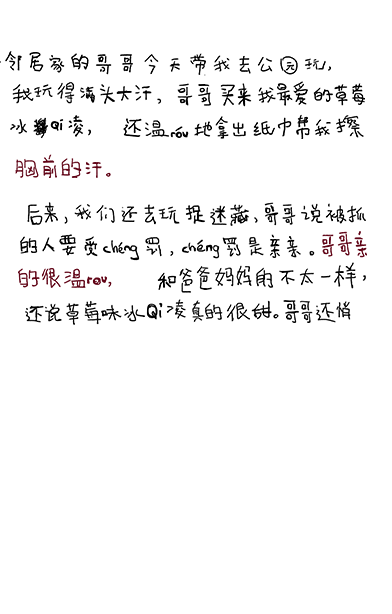 邻居家的哥哥今天带我去公园玩，
我玩得满头大汗，哥哥买来我最爱的草莓
冰Qi凌，还温róu地拿出纸巾帮我擦
胸前的汗。
后来，我们还去玩捉迷藏，哥哥说被抓
的人要受chéng罚，chéng罚是亲亲。哥哥亲
的很温rou，和爸爸妈妈的不太一样，
还说草莓味冰Qi凌真的很甜。哥哥还悄